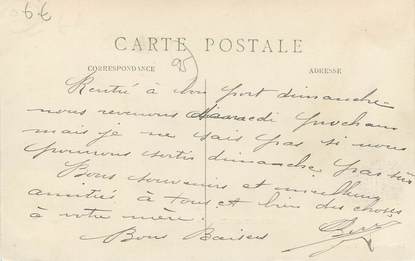 6 €
CARTE POSTALE
95
CORRESPONDANCE
ADRESSE
Rentré à bon port dimanche
nous revenons samedi prochain
mais je ne sais pas si nous
pourrons sortir dimanche pas sûr
Bons souvenirs et meilleurs
amitiés à tous et bien des choses
à votre mère.
Bons Baisers